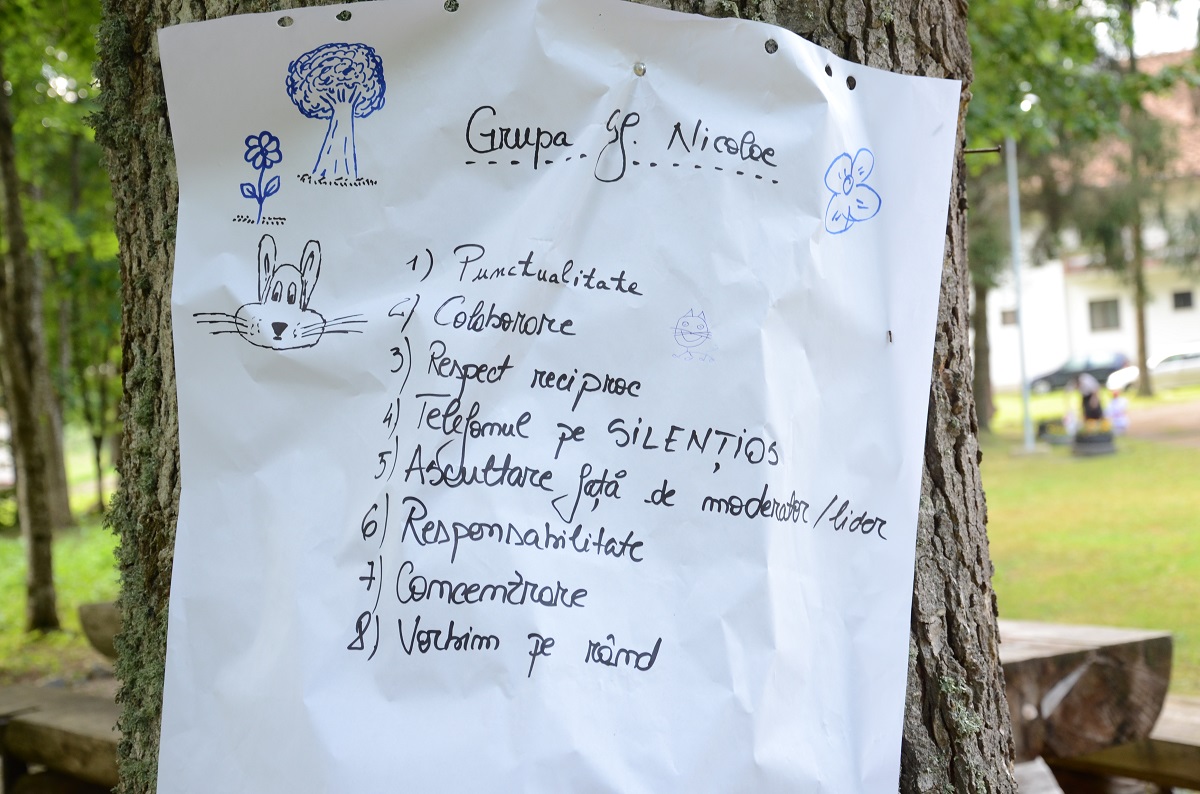 Grupa Sf. Nicolae
1) Punctualitate
2) Colaborare
3) Respect reciproc
4) Telefonul pe SILENȚIOS
5) Ascultare față de moderator/lider
6) Responsabilitate
7) Concentrare
8) Vorbim pe rând